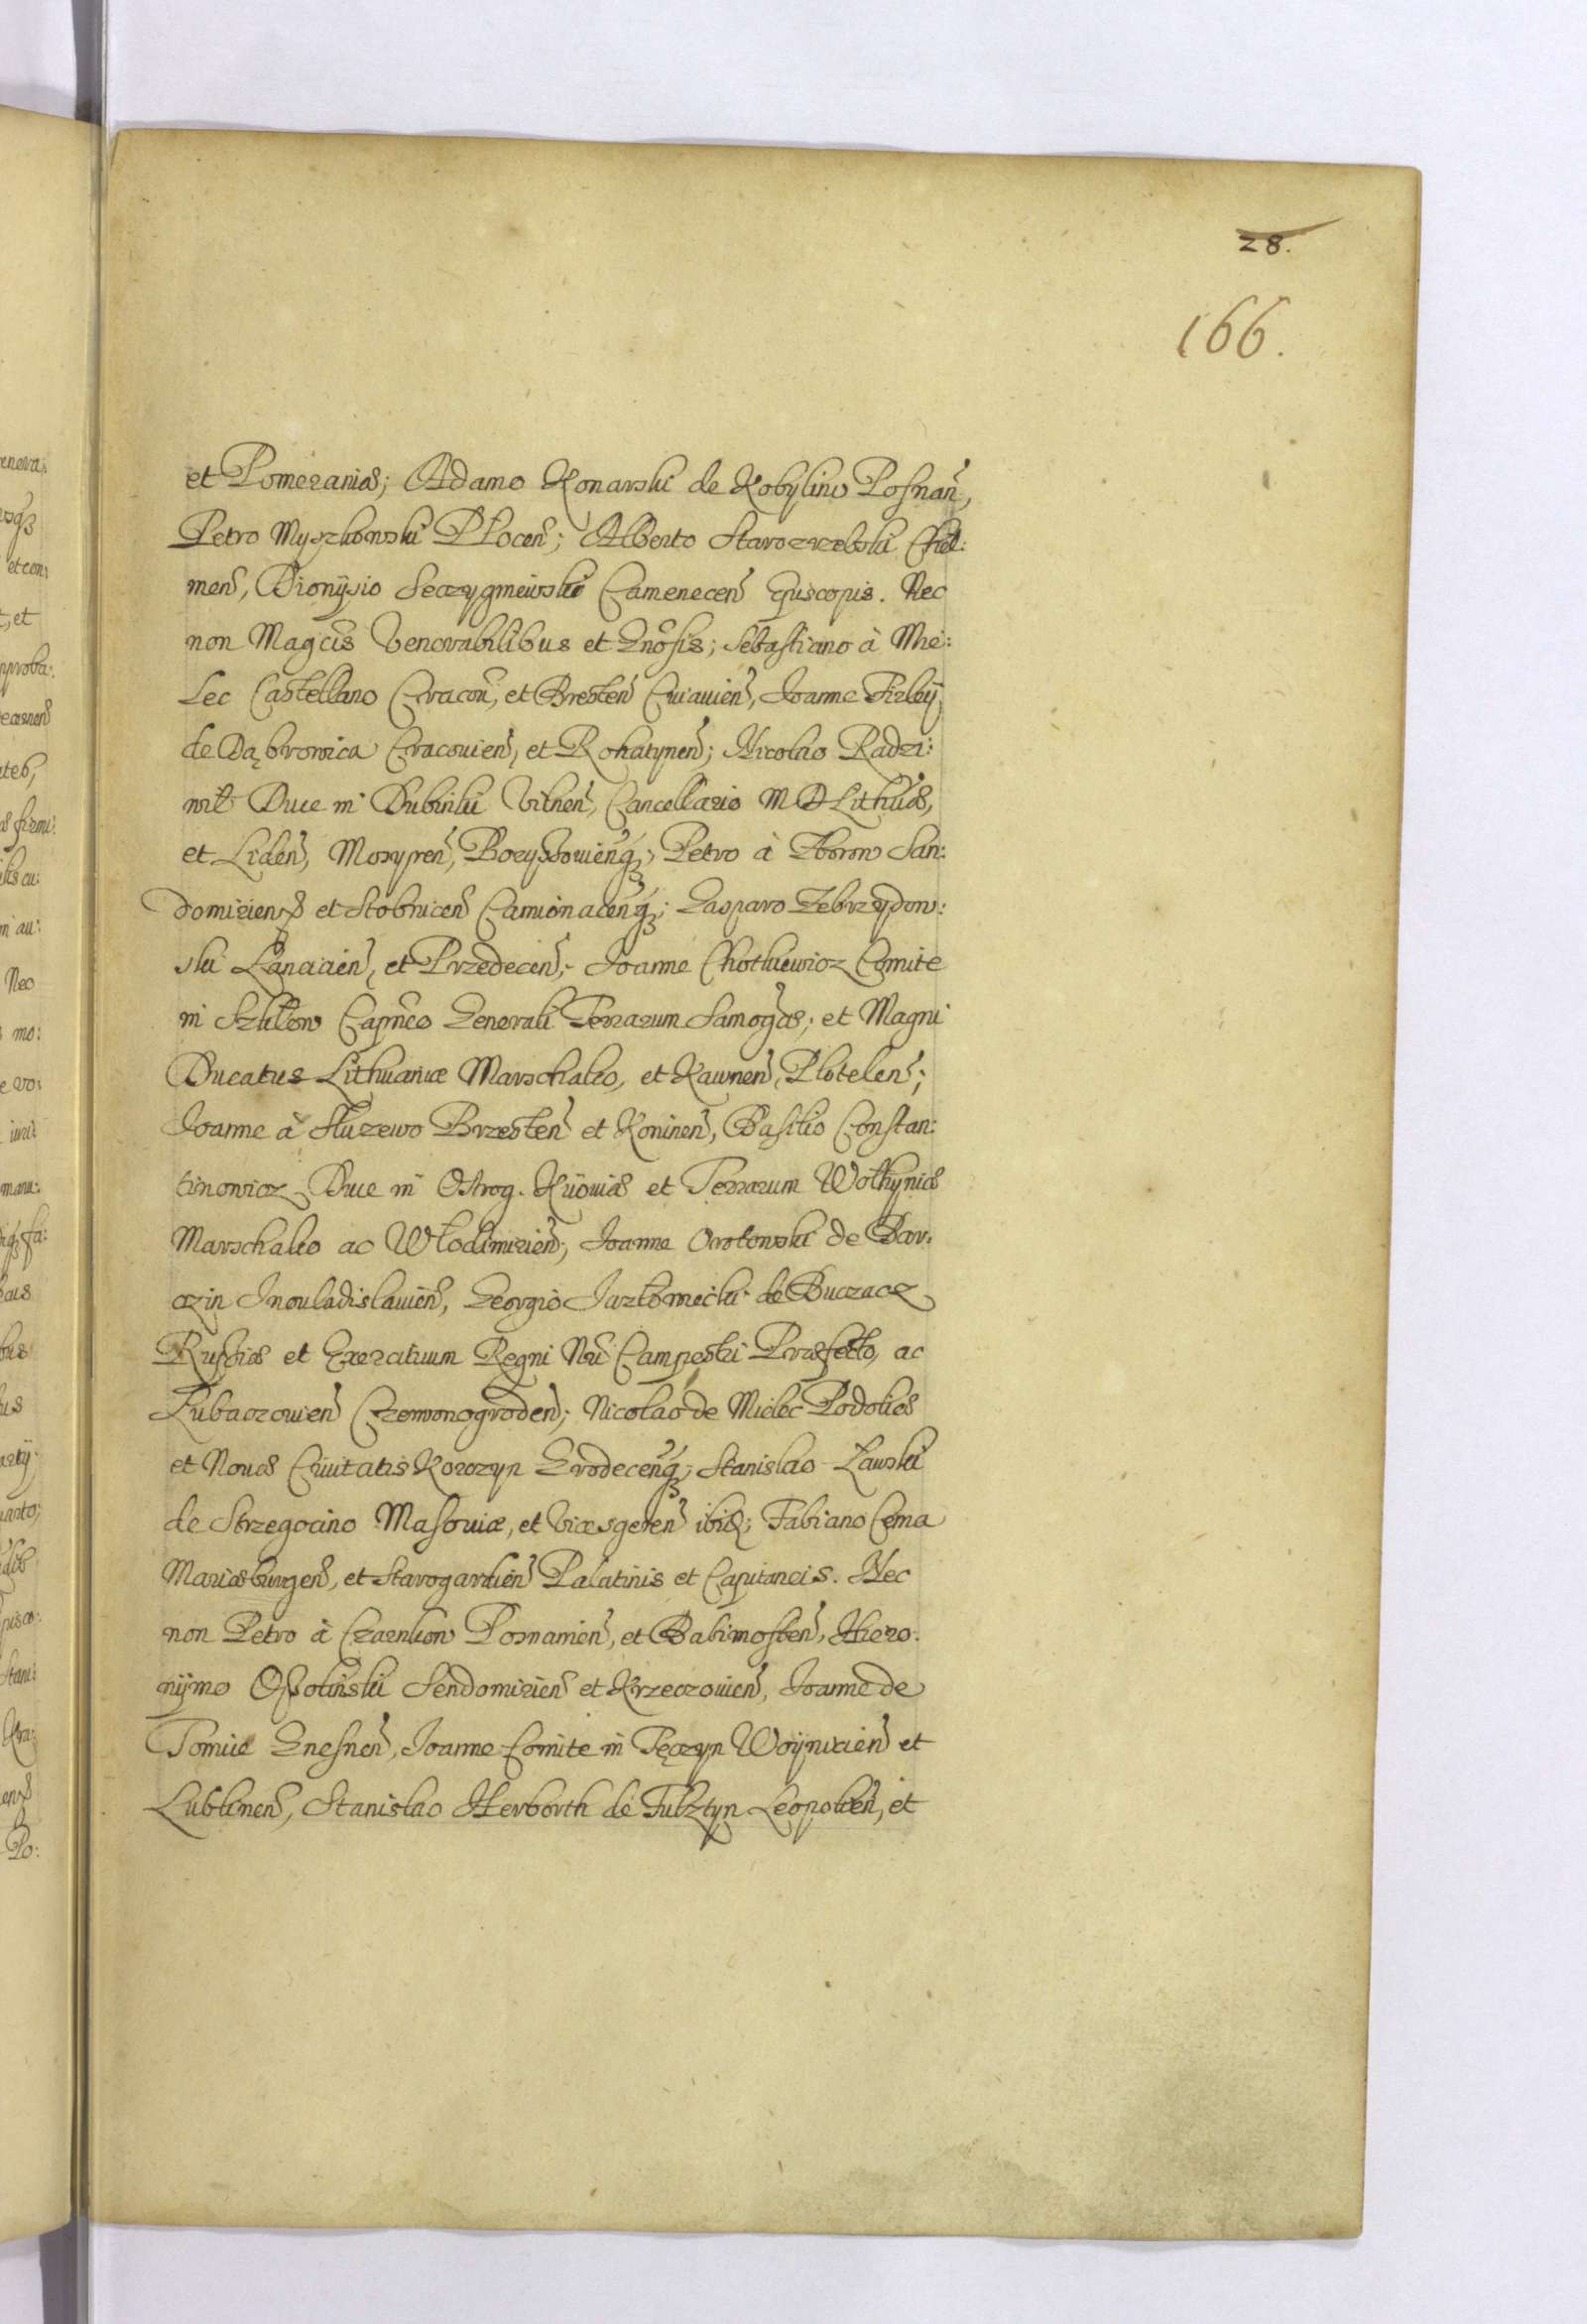 28.
166.
et Pomeraniæ; Adamo Konarski de Kobylino Posnañ,
Petro Myszkowski Płoceñ; Alberto Starozrzebski Chel:
meñ, Dionÿsio Seczygnieiwski Cameneceñ Episcopis. Nec
non Magcis Venerabilibus et Gnosis; Sebastiano à Mie:
lec Castellano Cracoñ, et Bresteñ Cuiauieñ, Joanne Firleÿ
de Dąbrowica Cracouieñ, et Rohatyneñ; Nicolao Radzi:
wił Duce in Dubinki Vilneñ, Cancellario M D Lithuæ,
et Lideñ, Mozyreñ, Boryssowieñq3; Petro à Zborow San:
domirieñ et Stobniceñ Camionaceñq3; Gasparo Zebrzydow:
ski Lancicieñ, et Przedeceñ; Joanne Chotkiewicz Comite
in Szklow Capnco Generali Terrarum Samogæ; et Magni
Ducatus Lithuaniæ Marschalco, et Kawneñ, Ploteleñ;
Joanne à Służewo Brzesteñ et Konineñ, Basilio Constan:
tinowicz Duce in Ostrog. Kijouiæ et Terrarum Wołhyniæ
Marschalco ac Włodimirieñ; Joanne Orłowski de Bar:
czin Inouladislauieñ, Georgio Jazłowiecki de Buczacz
Russiæ et Exercituum Regni Nri Campestri Præfecto, ac
Lubaczouieñ Czerwonogrodeñ; Nicolao de Mielec Podoliæ
et Nouæ Ciuitatis Korczyn Grodeceñq3; Stanislao Ławski
de Strzegocino Masouiæ, et Vicesgereñ ibid; Fabiano Cema
Mariæburgeñ, et Starogardieñ Palatinis et Capitaneis. Nec
non Petro à Czarnkow Posnanieñ, et Babimosteñ, Hiero:
nÿmo Ossoliński Sendomirieñ et Krzeczouieñ, Joanne de
Tomice Gnesneñ, Joanne Comite in Tęczyn Woÿnicieñ et
Lublineñ, Stanislao Herborth de Fulsztyn Leopolieñ, et